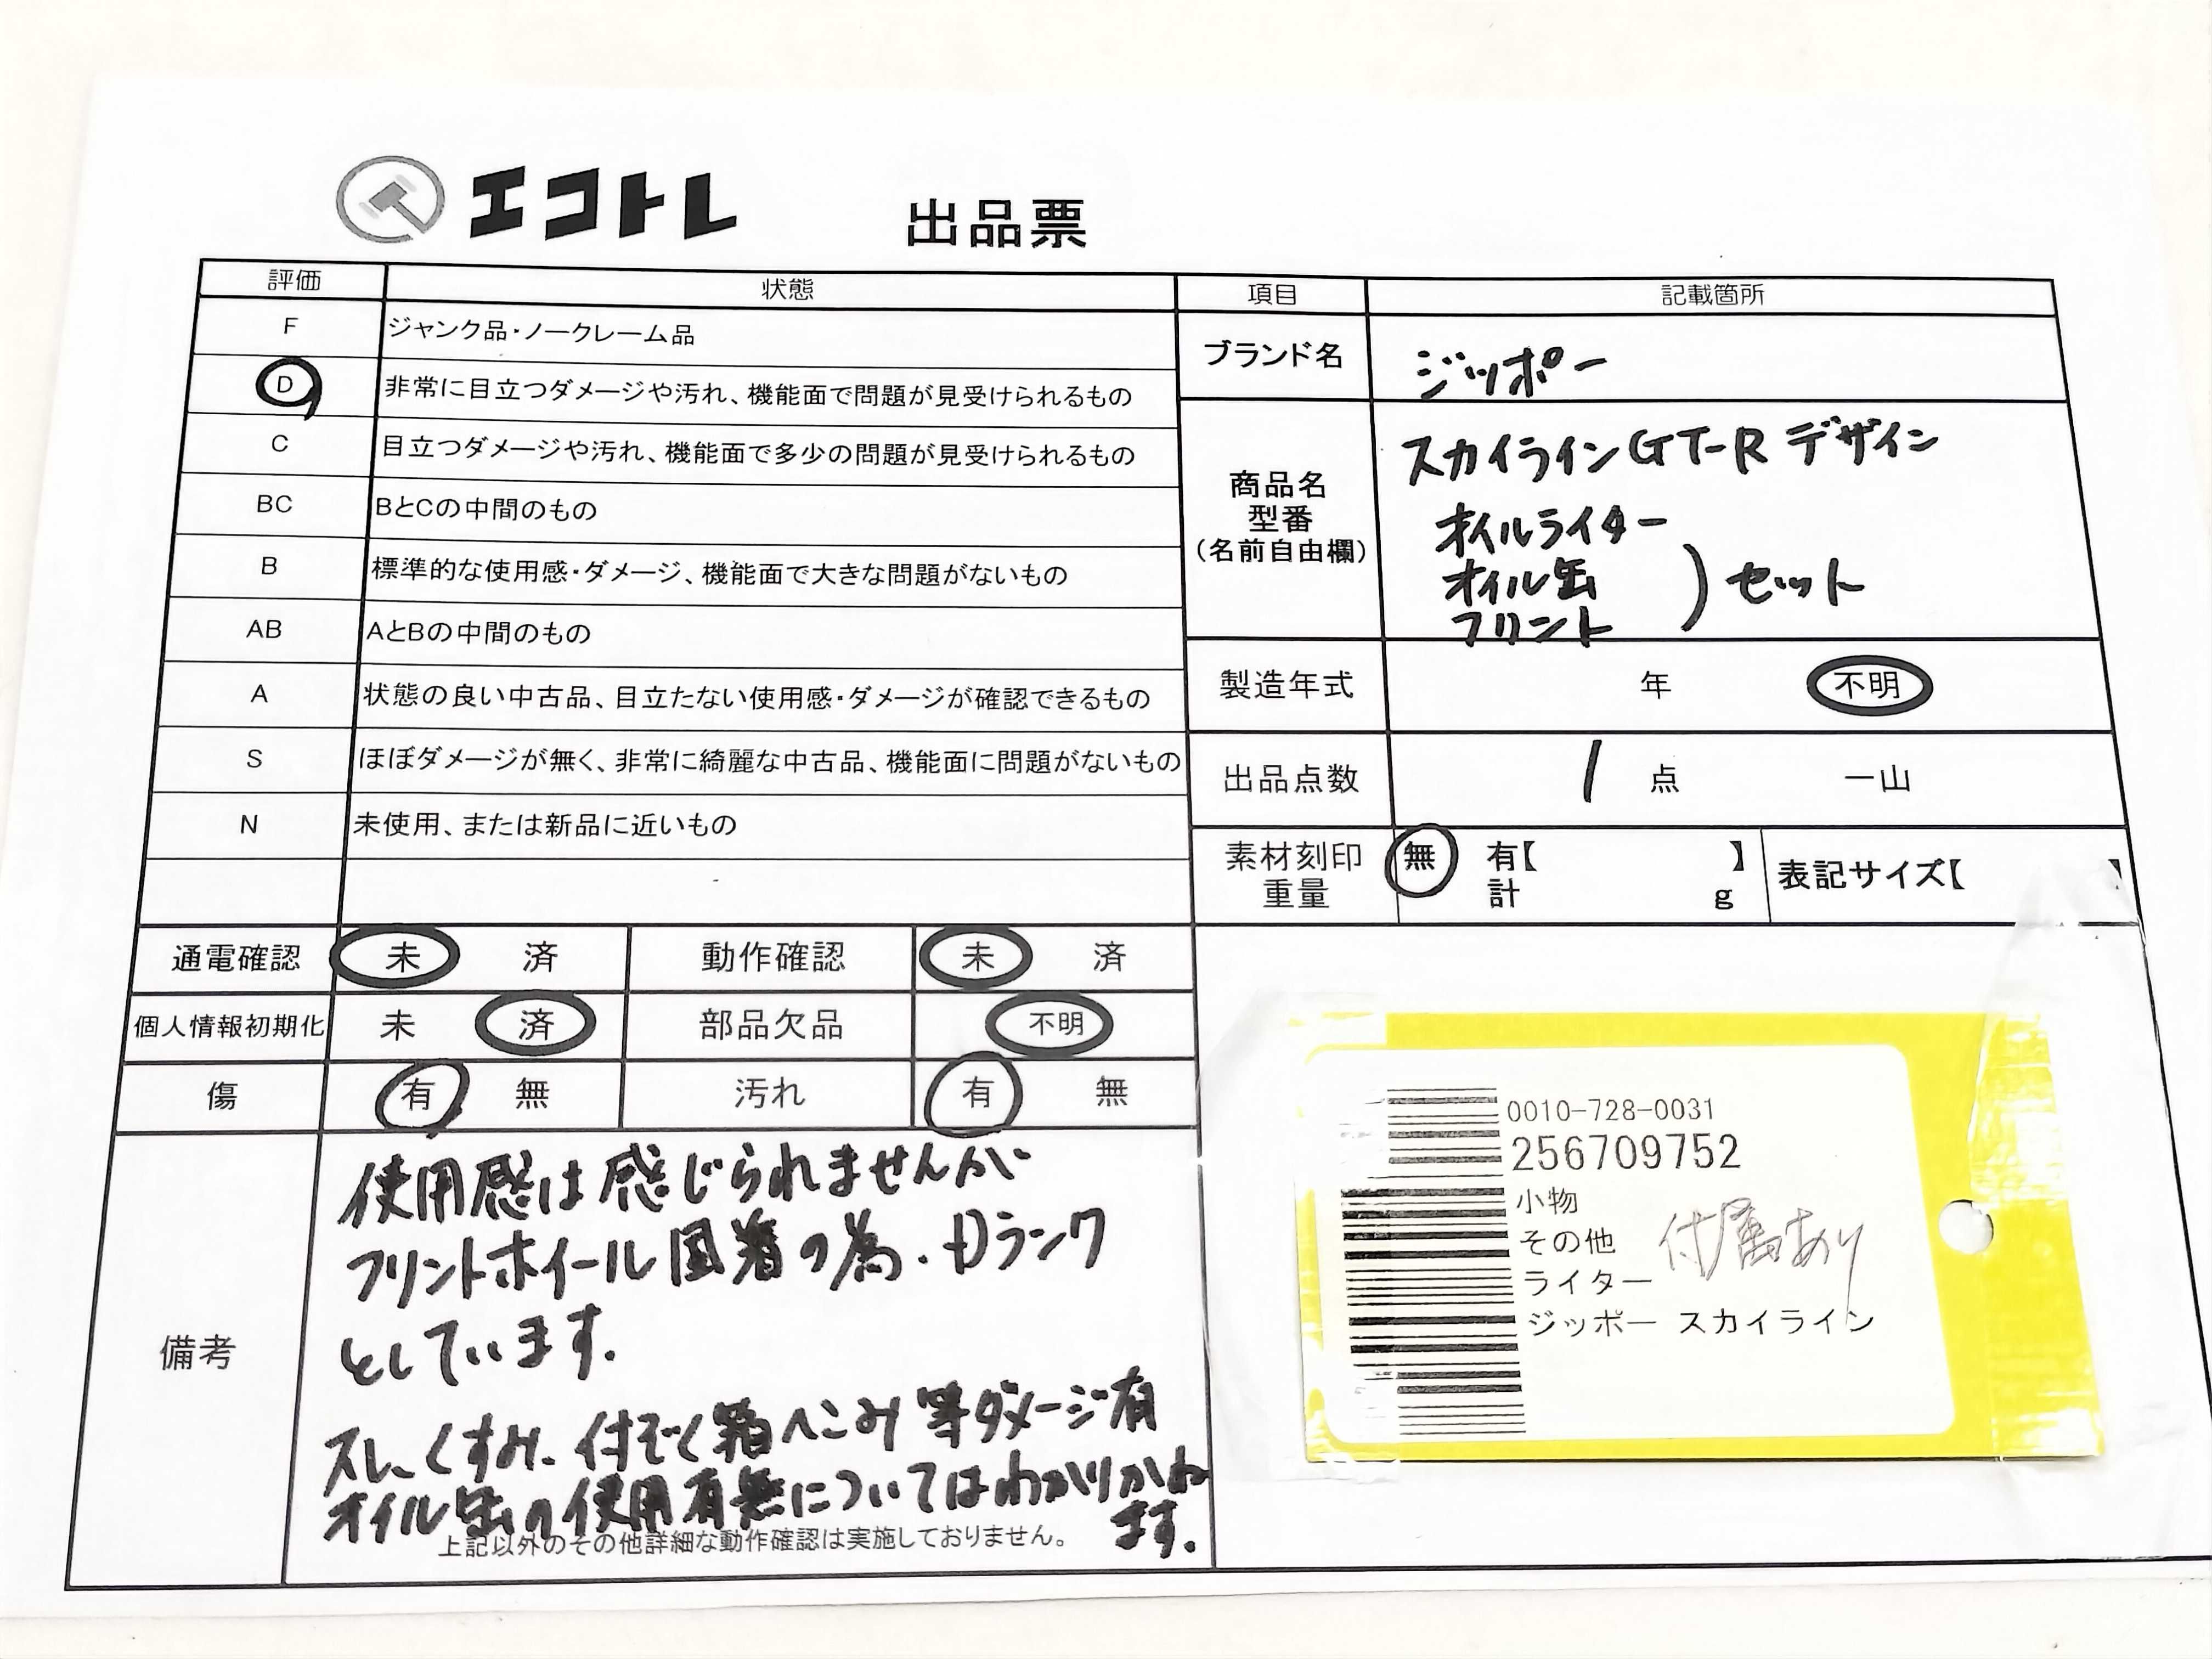 エコトレ 出品票
評価 状態
F ジャンク品・ノークレーム品
D 非常に目立つダメージや汚れ、機能面で問題が見受けられるもの
C 目立つダメージや汚れ、機能面で多少の問題が見受けられるもの
BC BとCの中間のもの
B 標準的な使用感・ダメージ、機能面で大きな問題がないもの
AB AとBの中間のもの
A 状態の良い中古品、目立たない使用感・ダメージが確認できるもの
S ほぼダメージが無く、非常に綺麗な中古品、機能面に問題がないもの
N 未使用、または新品に近いもの
項目 記載箇所
ブランド名 ジッポー
商品名
型番
(名前自由欄)
スカイラインGT-Rデザイン
オイルライター
オイル缶
フリント
)セット
製造年式 年 不明
出品点数 1 点 一山
素材刻印 無 有【 】
重量 計 g
表記サイズ【 】
通電確認 未 済 動作確認 未 済
個人情報初期化 未 済 部品欠品 不明
傷 有 無 汚れ 有 無
備考
使用感は感じられませんが
フリントホイール固着の為・Dランク
としています.
スレ、くすみ、付ぞく箱へこみ等ダメージ有
オイル缶の使用有無についてはわかりかね
ます.
上記以外のその他詳細な動作確認は実施しておりません。
0010-728-0031
256709752
小物
その他
ライター
ジッポー スカイライン
付属あり